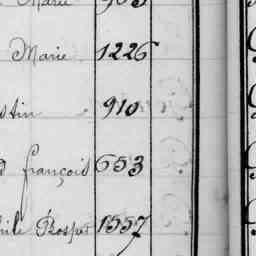 Marie 903
Marie 1226
stin 910
d françois 653
ile Prosper 1557